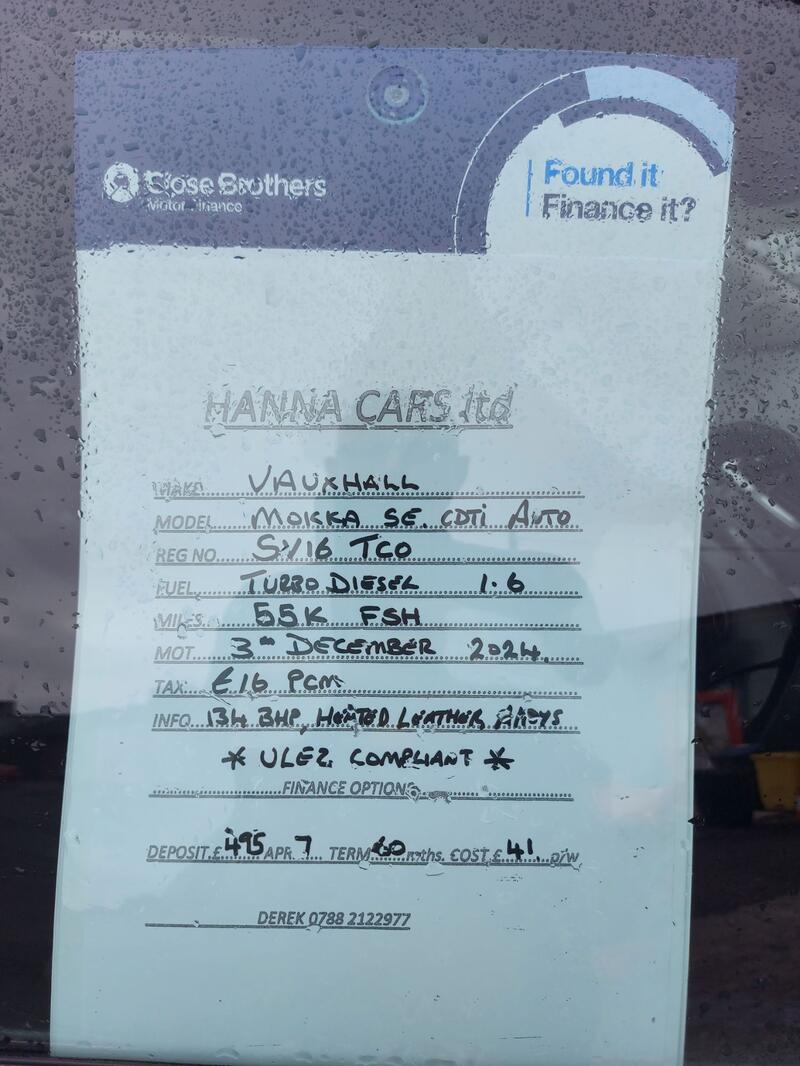 Close Brothers
Motor Finance
Found it
Finance it?
HANNA CARS ltd
MAKE VAUXHALL
MODEL MOKKA SE. CDTi AUTO
REG NO. SY16 TCO
FUEL TURBO DIESEL 1.6
MILES 55K FSH
MOT 3RD DECEMBER 2024.
TAX £16 PCM
INFO 134 BHP, HEATED LEATHER, ALLOYS
* ULEZ COMPLIANT *
FINANCE OPTIONS
DEPOSIT £ 495 APR 7 TERM 60 mths. COST £ 41. p/w
DEREK 0788 2122977